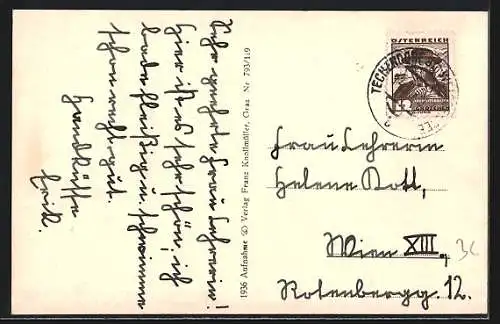 Sehr geehrte Frau Lehrerin!
Hier ist es sehr schön, ich
bade fleißig u. schwimme
schon recht gut.
Handküsse
Erik.
1936 Aufnahme © Verlag Franz Knollmüller, Graz. Nr 793/149
ÖSTERREICH
TECHENDORF
Frau Lehrerin
Helene Kott,
Wien XIII,
Rotenbergg. 12.